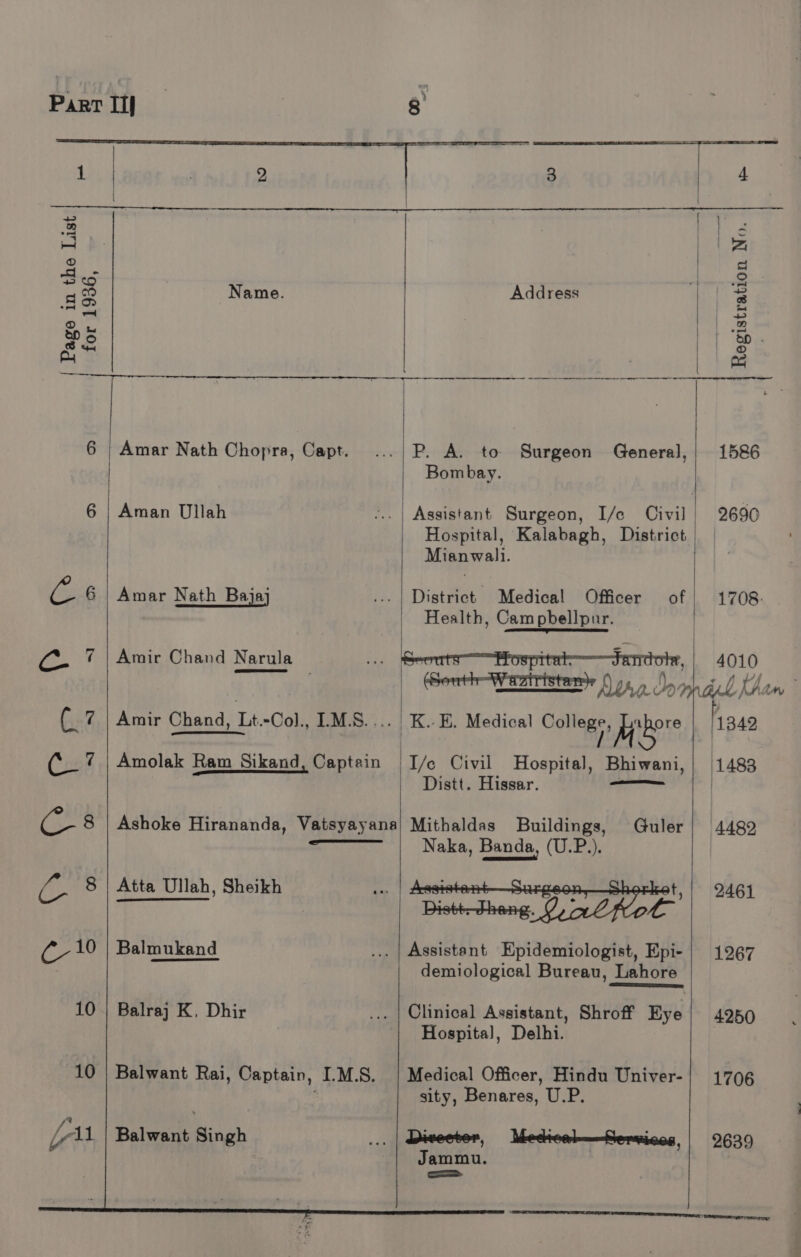 PART II] 8
1 2 3 4
Page in the List for 1936, Name. Address Registration No.
6 Amar Nath Chopra, Capt. ... P. A. to Surgeon General, 1586
Bombay.
6 Aman Ullah ... Assistant Surgeon, I/c Civil 2690
Hospital, Kalabagh, District
Mianwali.
C 6 Amar Nath Bajaj ... District Medical Officer of 1708
Health, Campbellpur.
C. 7 Amir Chand Narula ... Scouts Hospital, Jandola, 4010
(South Waziristan) Dera Ismail Khan
C 7 Amir Chand, Lt.-Col., I.M.S. ... K. E. Medical College, Lahore 1342
C 7 Amolak Ram Sikand, Captain I/c Civil Hospital, Bhiwani, 1483
Distt. Hissar.
C 8 Ashoke Hirananda, Vatsyayana Mithaldas Buildings, Guler 4482
Naka, Banda, (U.P.).
C 8 Atta Ullah, Sheikh ... Assistant Surgeon, Shorkot, 2461
Distt. Jhang. Sialkot
C 10 Balmukand ... Assistant Epidemiologist, Epi- 1267
demiological Bureau, Lahore
10 Balraj K. Dhir ... Clinical Assistant, Shroff Eye 4250
Hospital, Delhi.
10 Balwant Rai, Captain, I.M.S. Medical Officer, Hindu Univer- 1706
sity, Benares, U.P.
11 Balwant Singh ... Director, Medical Services, 2639
Jammu.